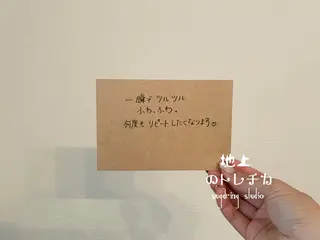 一瞬でツルツル
ふわ、ふわ。
何度もリピートしたくなります
地上
のトレチカ
sugaring studio